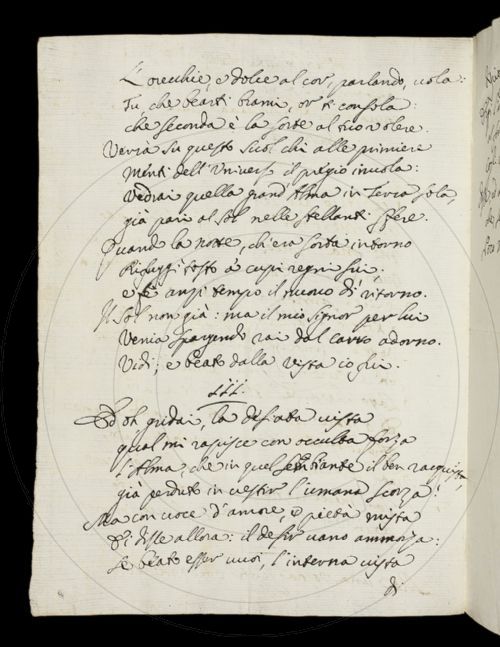 L'orecchie, e dolce al cor, parlando, vola:
Tu, che bearti brami, or ti consola:
che seconda è la sorte al tuo volere.
Verrà su questo suol chi alle primiere
Menti dell'Universo il pregio invola:
Vedrai quella grand'Alma in Terra sola,
già pari al Sol nelle stellanti sfere.
Quando la notte, ch'era sorta intorno
Rifuggì tosto a' cupi regni sui;
e fe' anzi tempo il nuovo dì ritorno.
Il Sol non già: ma il mio Signor per lui
Venia spargendo rai dal carro adorno.
Vidi; e beato dalla vista io fui.
III.
Ed oh gridai, la desiata vista
qual mi rapisce con occulta forza
l'Alma, che in quel sembiante il ben racquista,
già perduto in vestir l'umana scorza!
Ma con voce d'amore, e pietà mista
disse allora: il desir vano ammorza:
se beato esser vuoi, l'interna vista
di